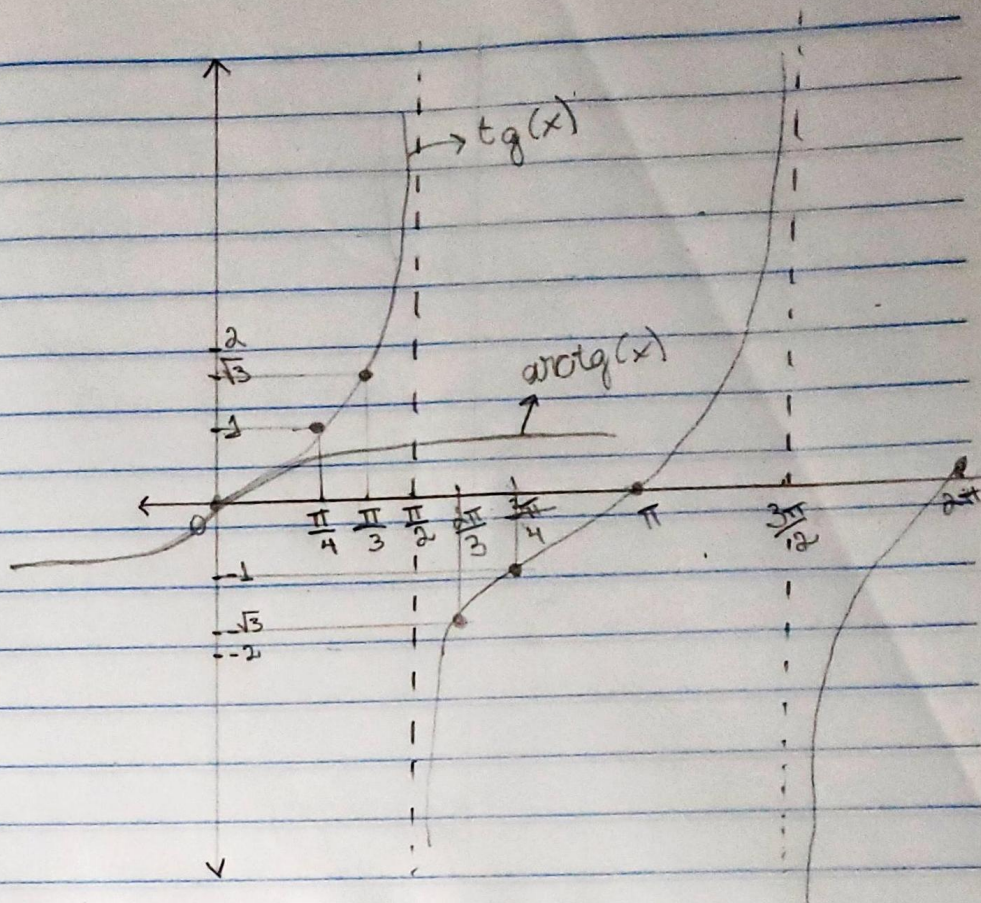 tg(x)
2
√3
arctg(x)
1
0
π/4 π/3 π/2 2π/3 3π/4 π 3π/2 2π
-1
-√3
-2